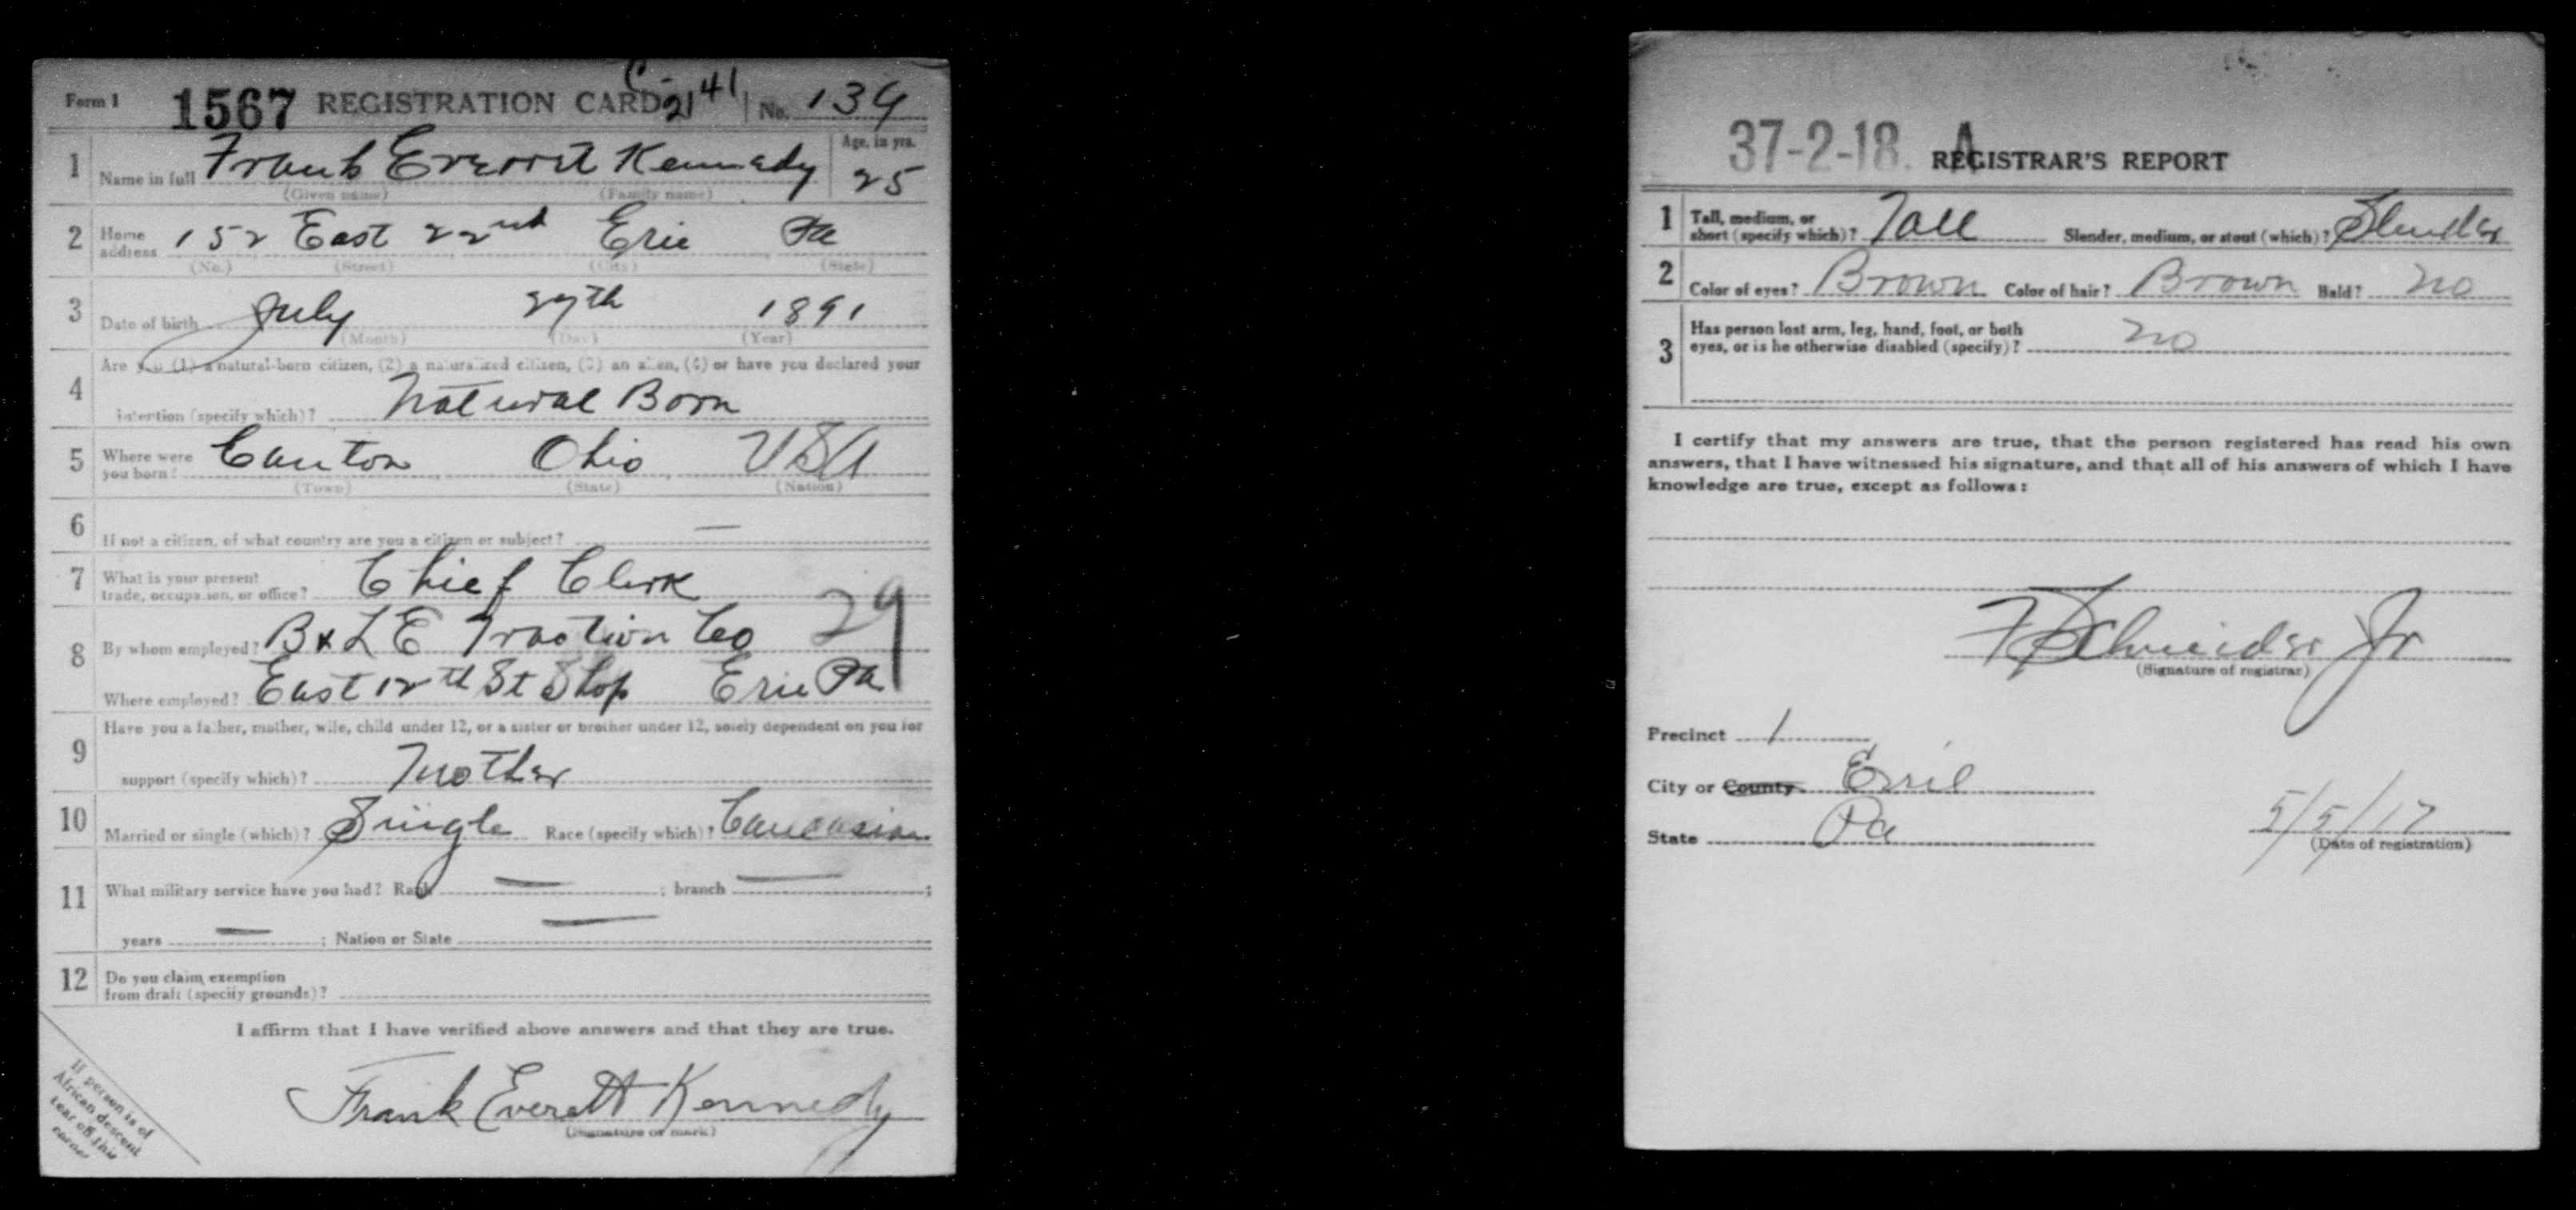 Form 1 1567 REGISTRATION CARD C-2141 No. 139
1 Name in full Frank Everett Kennedy Age, in yrs. 25
(Given name) (Family name)
2 Home address 152 East 22nd Erie Pa
(No.) (Street) (City) (State)
3 Date of birth July 27th 1891
(Month) (Day) (Year)
4 Are you (1) a natural-born citizen, (2) a naturalized citizen, (3) an alien, (4) or have you declared your
intention (specify which)? Natural Born
5 Where were you born? Canton Ohio USA
(Town) (State) (Nation)
6 If not a citizen, of what country are you a citizen or subject? —
7 What is your present trade, occupation, or office? Chief Clerk
29
8 By whom employed? B & L E Traction Co
Where employed? East 12th St Shop Erie Pa
9 Have you a father, mother, wife, child under 12, or a sister or brother under 12, solely dependent on you for
support (specify which)? Mother
10 Married or single (which)? Single Race (specify which)? Caucasian
11 What military service have you had? Rank — ; branch — ;
years — ; Nation or State —
12 Do you claim exemption
from draft (specify grounds)?
I affirm that I have verified above answers and that they are true.
Frank Everett Kennedy
(Signature or mark)
If person is of
African descent
tear off this
corner
37-2-18. A
REGISTRAR'S REPORT
1 Tall, medium, or short (specify which)? Tall Slender, medium, or stout (which)? Slender
2 Color of eyes? Brown Color of hair? Brown Bald? no
3 Has person lost arm, leg, hand, foot, or both
eyes, or is he otherwise disabled (specify)? no
I certify that my answers are true, that the person registered has read his own
answers, that I have witnessed his signature, and that all of his answers of which I have
knowledge are true, except as follows:
Schneider Jr
(Signature of registrar)
Precinct 1
City or County Erie
State Pa
5/5/17
(Date of registration)